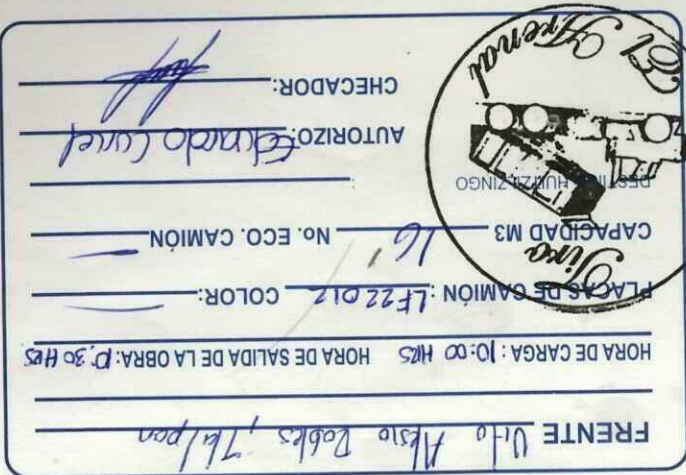 FRENTE Vito Alesio Robles, Tlalpan
HORA DE CARGA: 10:00 HRS HORA DE SALIDA DE LA OBRA: 10:30 HRS
PLACAS DE CAMIÓN: LF22012 COLOR:
CAPACIDAD M3 16 No. ECO. CAMIÓN
DESTINO HUITZILZINGO
AUTORIZO: Eduardo Curiel
CHECADOR:
Tiro
El Arenal